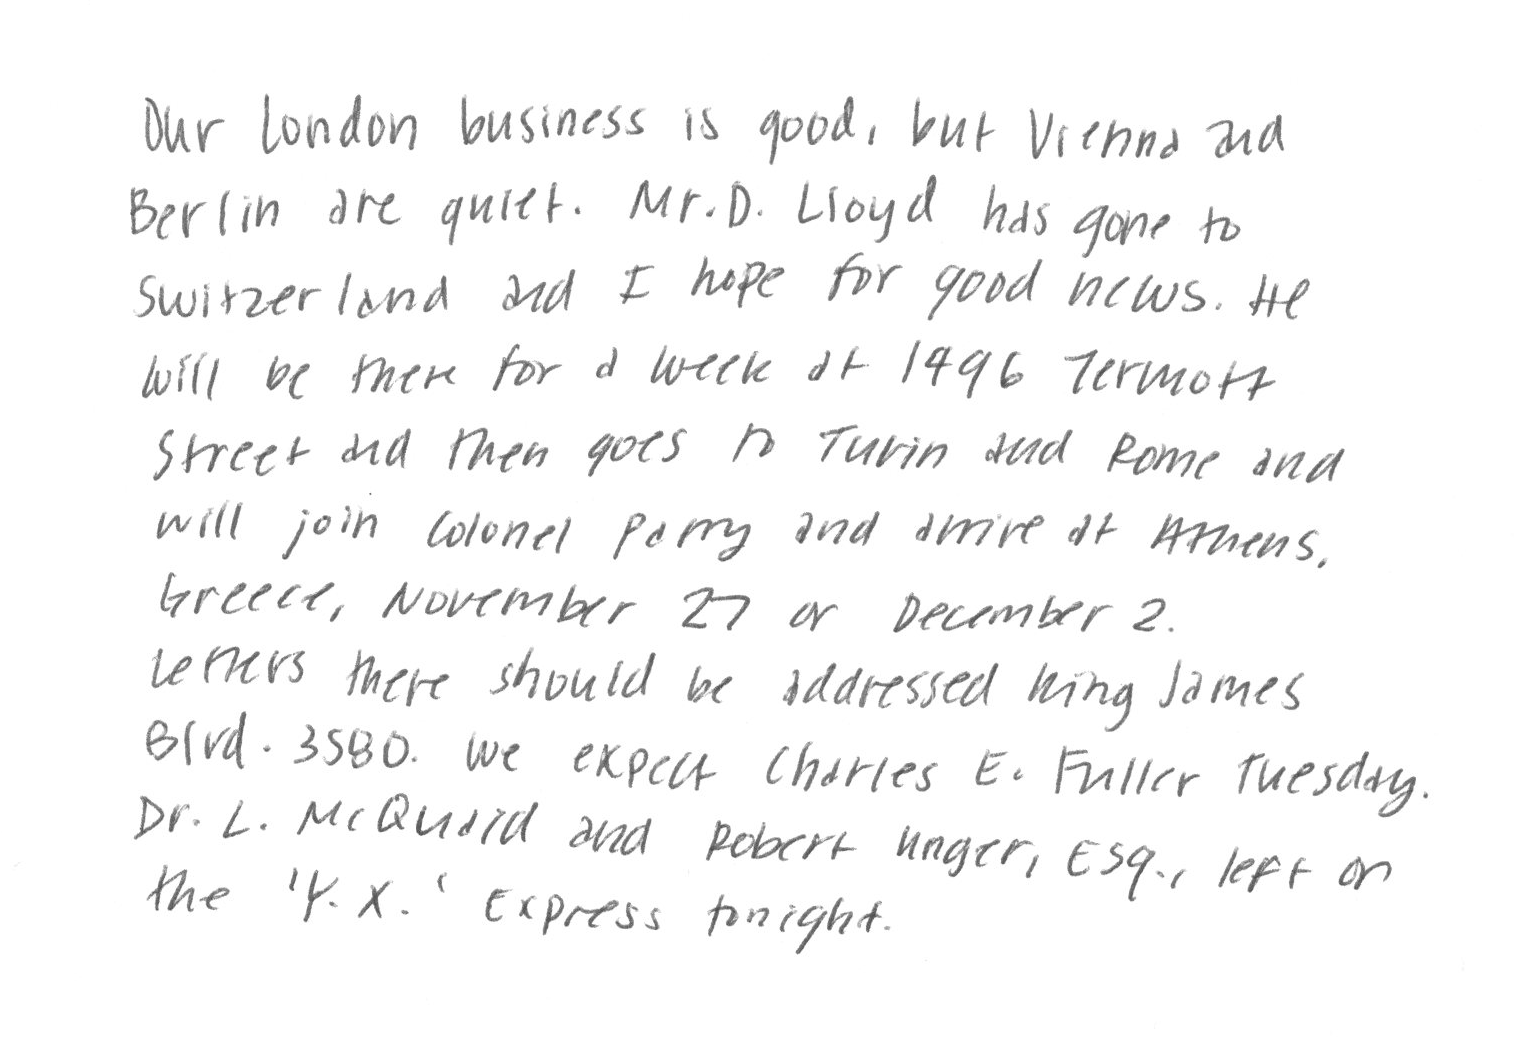 Our London business is good, but Vienna and
Berlin are quiet. Mr. D. Lloyd has gone to
Switzerland and I hope for good news. He
will be there for a week at 1496 Zermott
Street and then goes to Turin and Rome and
will join Colonel Parry and arrive at Athens,
Greece, November 27 or December 2.
Letters there should be addressed King James
Blvd. 3580. We expect Charles E. Fuller Tuesday.
Dr. L. McQuaid and Robert Unger, Esq., left on
the 'Y. X.' Express tonight.